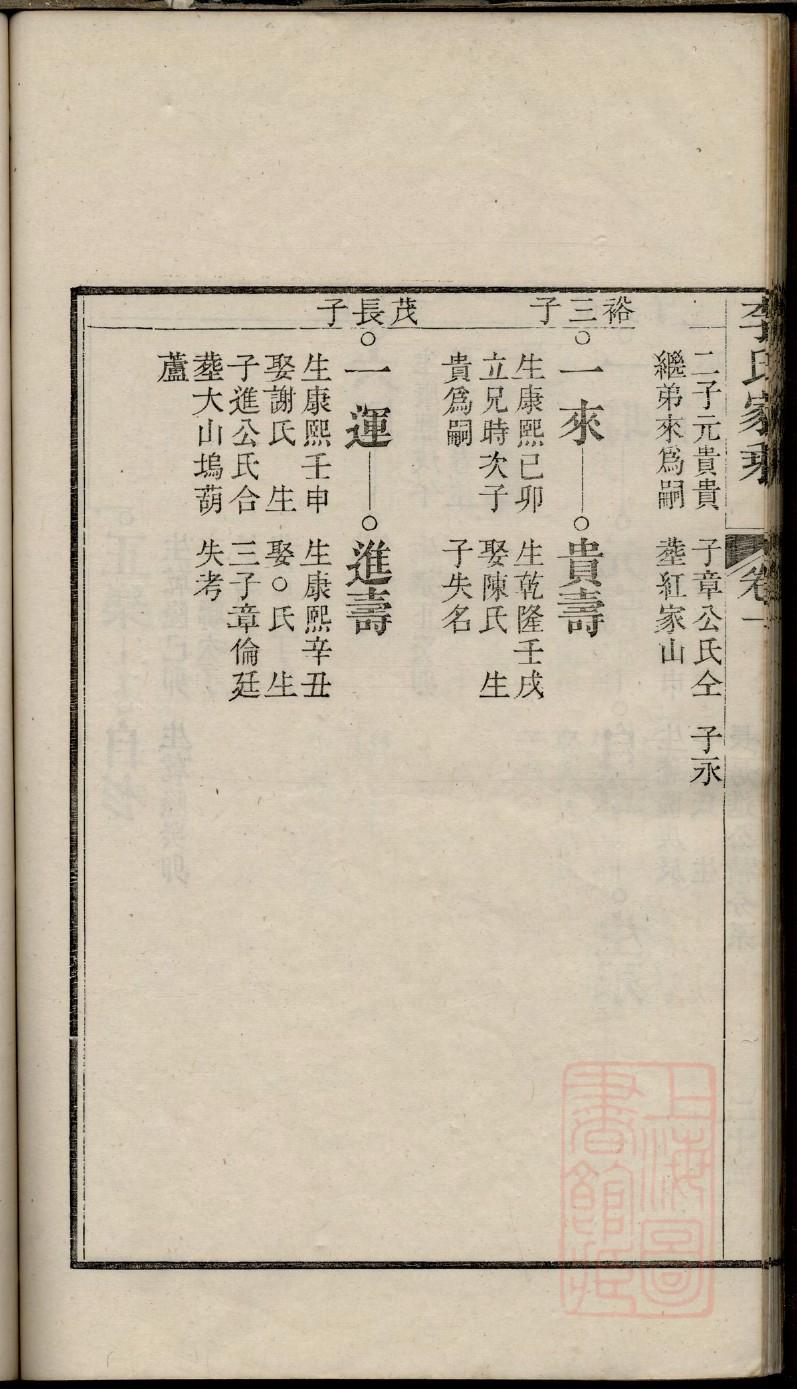 李氏家乘 卷一
二子元貴貴 子章公氏仝 子永
繼弟來為嗣 塟紅家山
裕三子
○一來——○貴壽
生康熙己卯 生乾隆壬戌
立兄時次子 娶陳氏 生
貴為嗣 子失名
茂長子
○一運——○進壽
生康熙壬申 生康熙辛丑
娶謝氏 生 娶○氏 生
子進公氏合 三子章倫廷
塟大山塢葫 失考
蘆
上海圖書館藏